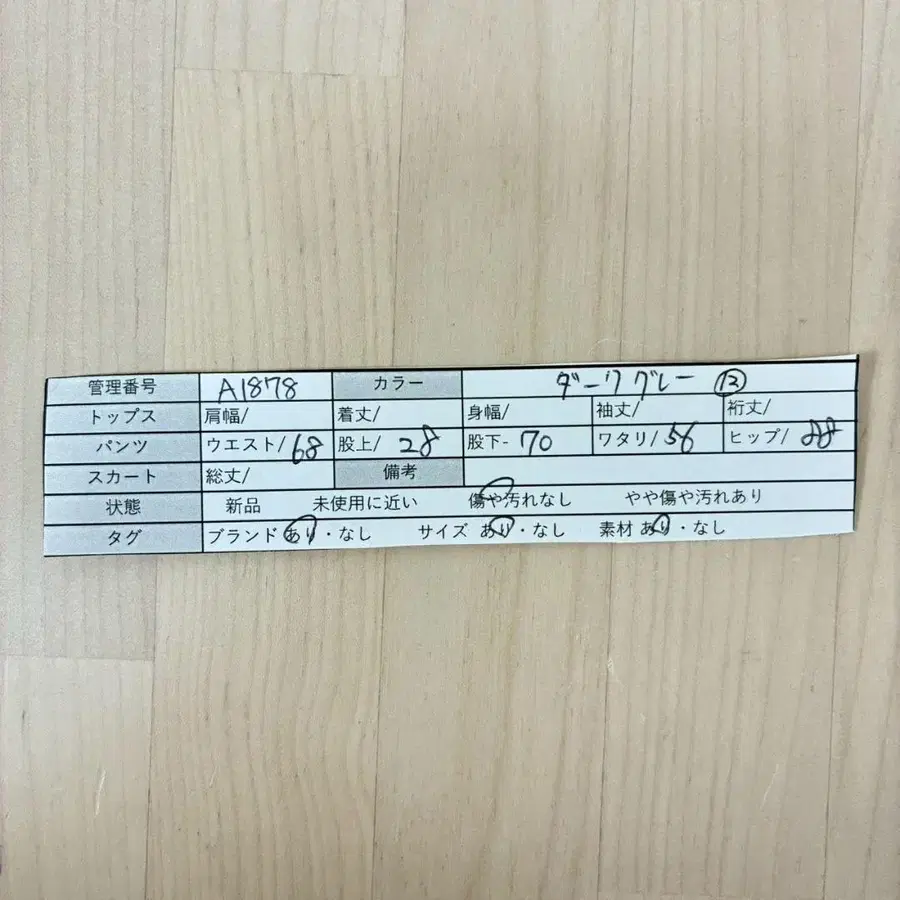 管理番号 A1878 カラー ダークグレー ⑫
トップス 肩幅/ 着丈/ 身幅/ 袖丈/ 裄丈/
パンツ ウエスト/68 股上/28 股下-70 ワタリ/56 ヒップ/88
スカート 総丈/ 備考
状態 新品 未使用に近い 傷や汚れなし やや傷や汚れあり
タグ ブランド あり・なし サイズ あり・なし 素材 あり・なし